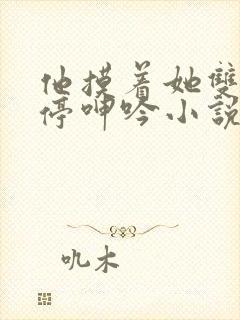 他摸着她雙
停呻吟小說
叽木